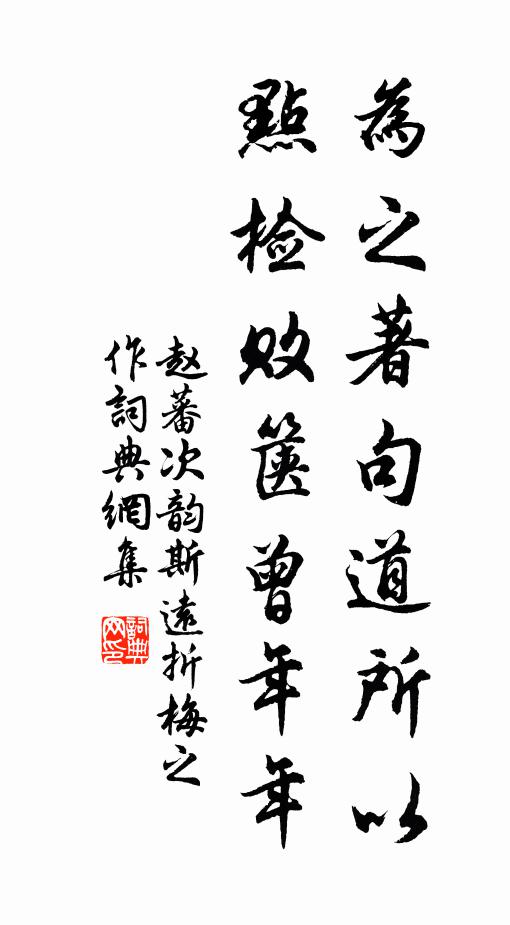 為之著句道所以
點檢敗篋曾年年
赵蕃次韵斯遠折梅之
作詞典網集
詞典網印